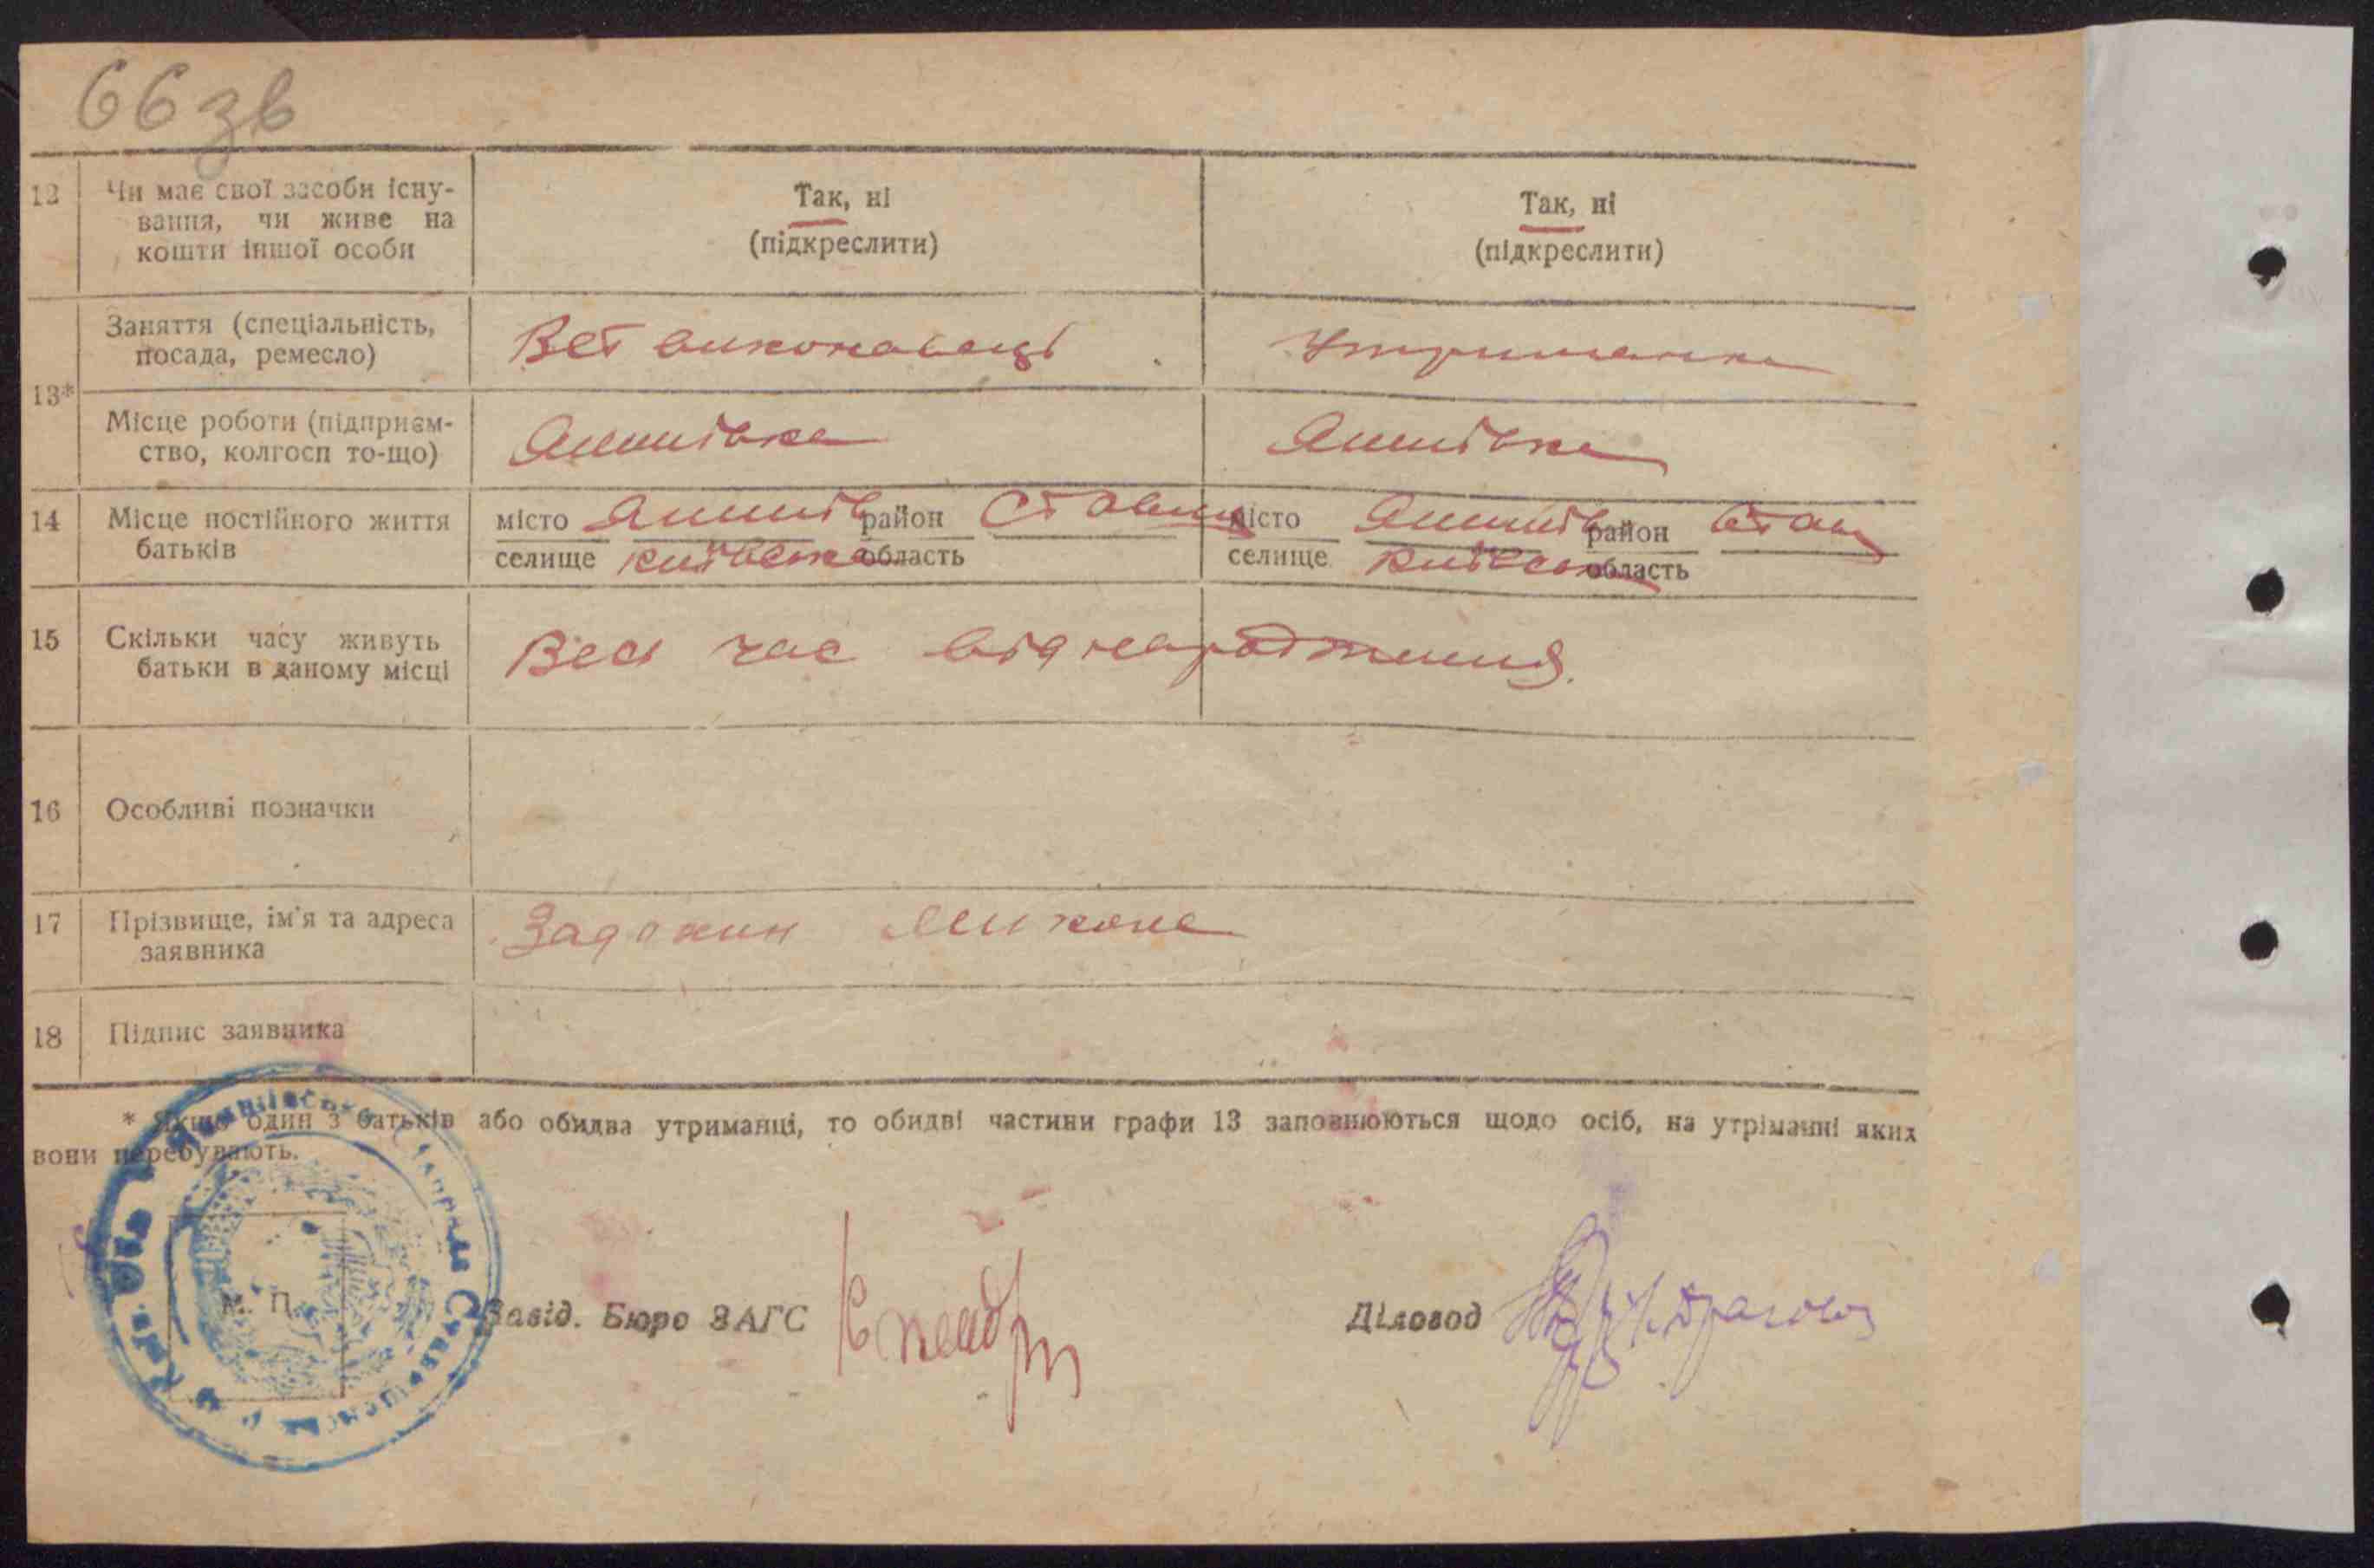 66 зв
12 Чи має свої засоби існу-
вання, чи живе на
кошти іншої особи
Так, ні
(підкреслити)
Так, ні
(підкреслити)
13*
Заняття (спеціальність,
посада, ремесло)
Вет виконавець
Утриманка
Місце роботи (підприєм-
ство, колгосп то-що)
Яшнівка
Яшнівка
14 Місце постійного життя
батьків
місто район
селище Київська область
місто район
селище Київська область
15 Скільки часу живуть
батьки в даному місці
Весь час від народження.
16 Особливі позначки
17 Прізвище, ім'я та адреса
заявника
18 Підпис заявника
* Якщо один з батьків або обидва утриманці, то обидві частини графи 13 заповнюються щодо осіб, на утріманні яких
вони перебувають.
М. П.
Завід. Бюро ЗАГС
Діловод